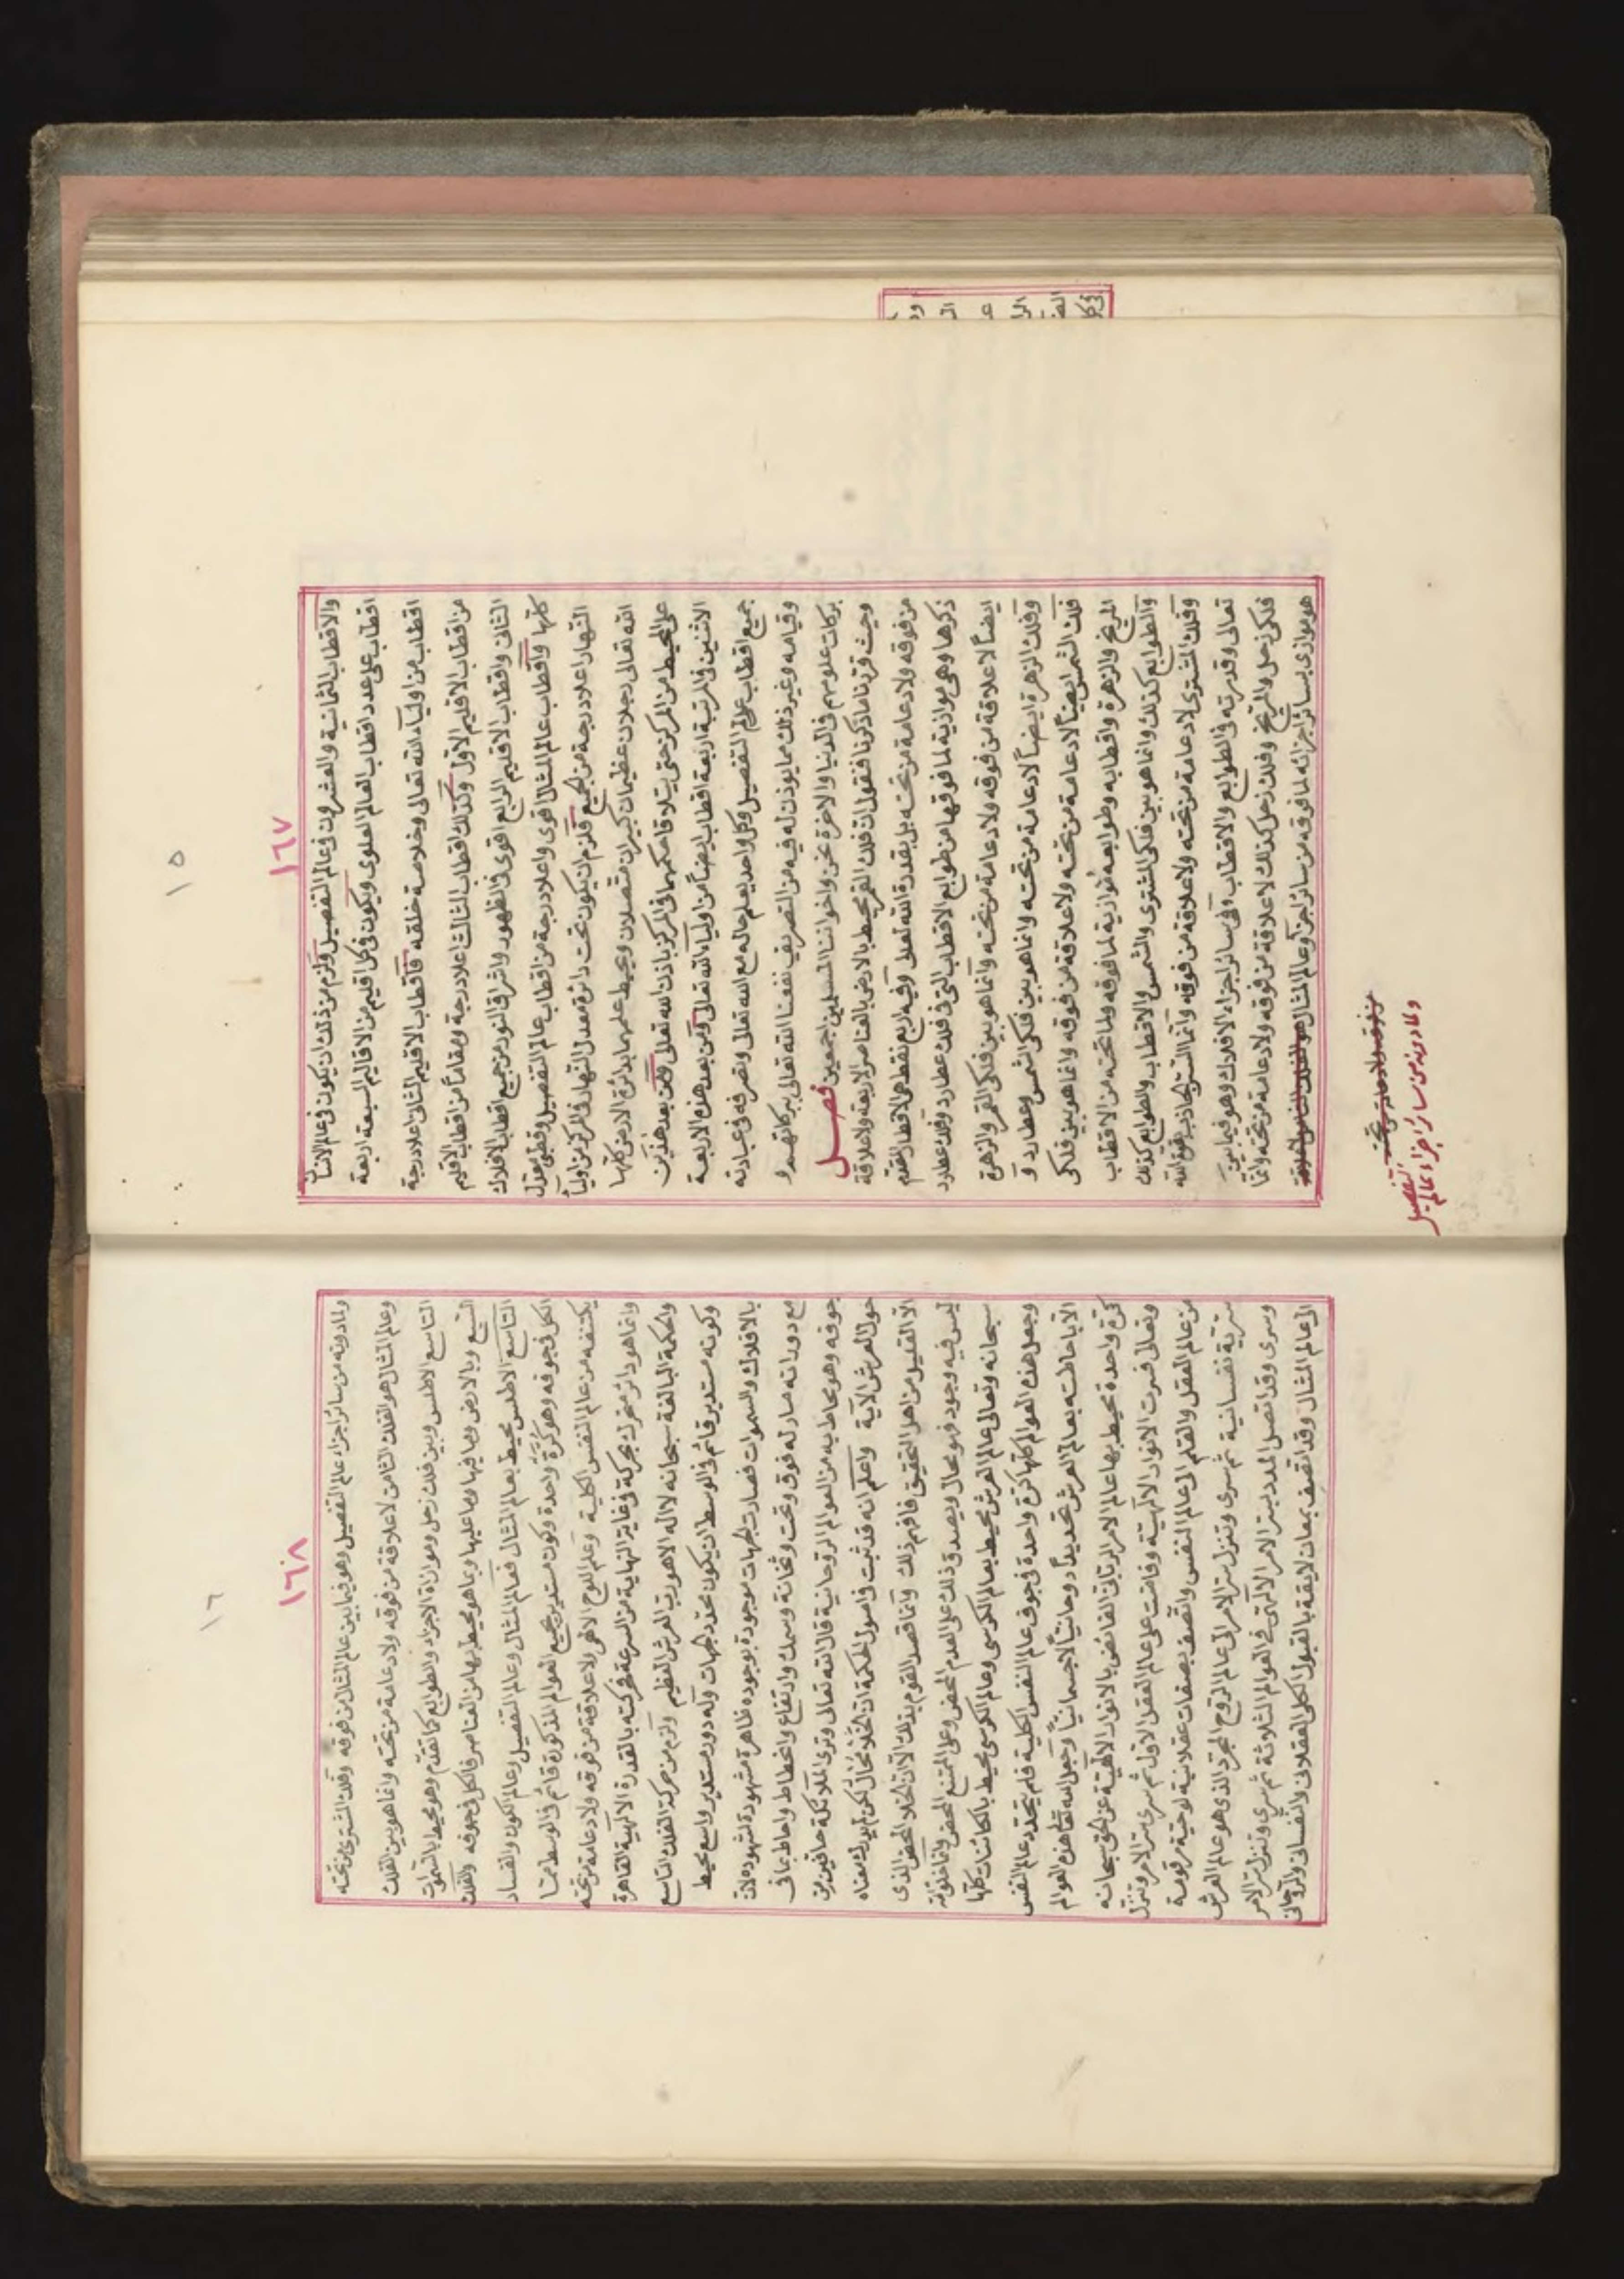 ١٦٧
١٥
والاقطاب الثمانية والعشرون في عالم التفصيل ولزم من ذلك ان يكون في عالم الانسان
اقطاب على عدد اقطاب العالم العلوى ويكون في كل اقليم من الاقاليم السبعة اربعة
اقطاب من اولياء الله تعالى وخلاصة خلقه فاقطاب الاقليم الثانى اعلا درجة
من اقطاب الاقليم الاول وكذلك اقطاب الثالث اعلا درجة ومقاماً من اقطاب الاقليم
الثانى واقطاب الاقليم الرابع اقوى في الظهور واشراق النور من جميع اقطاب الافلاك
كلها واقطاب عالم المثال اقوى واعلا درجة من اقطاب عالم التفصيل وقطبى معدل
النهار اعلا درجة من الجميع فلزم ان يكون تحت دائرة معدل النهار في المركز من اولياء
الله تعالى رجلان عظيمان كبيران متصلان ويحيط علمهما بدائرة الارض كلها
على المحيط من المركز حتى يتلاقا حكمهما في المركز باذن الله تعالى ومن بعد هذين
الاثنين في المرتبة اربعة اقطاب ايضاً من اولياء الله تعالى ومن بعد هذه الاربعة
جميع اقطاب عالم التفصيل وكل واحد يعلم حاله مع الله تعالى وتصرفه في عبادته
وقيامه وغير ذلك مما يوذن له فيه من التصريف نفعنا الله تعالى ببركاتهم و
بركات علومهم في الدنيا والاخرة نحن واخواننا المسلمين اجمعين فصل
وحيث قررنا ما ذكرنا فنقول ان فلك القمر محيط بالارض بالعناصر الاربعة ولا علاقة
من فوقه ولا دعامة من تحته بل بقدرة الله تعالى وفيه اربع نقط هي الاقطاب المتقدم
ذكرها وهى موازية لما فوقها من طوابع الاقطاب التي في فلك عطارد وفلك عطارد
ايضاً لا علاقة من فوقه ولا دعامة من تحته وانما هو بين فلكى القمر والزهرة
وفلك الزهرة ايضاً لا دعامة من تحته وانما هو بين فلكى الشمس وعطارد و
فلك الشمس ايضاً لا دعامة من تحته ولا علاقة من فوقه وانما هو بين فلكى
المريخ والزهرة واقطابه وطوابعه موازية لما فوقه ولما تحته من الاقطاب
والطوابع كذلك وانما هو بين فلكى المشترى والشمس والاقطاب والطوابع كذلك
وفلك المشترى لا دعامة من تحته ولا علاقة من فوقه وانما
تعالى وقدرته في الطوابع والاقطاب وفى سائر اجزاء الافلاك وهو فيما بين
فلكى زحل والمريخ وفلك زحل كذلك لا علاقة من فوقه ولا دعامة من تحته وانما
هو موازى بسائر اجزائه لما فوقه من سائر اجزاء عالم المثال
ولما دونه من سائر اجزاء عالم
التفصيل
١٦٨
١٦
ولما دونه من سائر اجزاء عالم التفصيل وهو فيما بين عالم المثال من فوقه وفلك المشترى من تحته
وعالم المثال هو الفلك الثامن لا علاقة من فوقه ولا دعامة من تحته وانما هو بين الفلك
التاسع الاطلس وبين فلك زحل وموازاة الاجزاء والطوابع كما تقدم وهو محيط بالسموات
السبع وبالارض وما فيها وما عليها وبما هو محيط بها من العناصر فالكل في جوفه والفلك
التاسع الاطلس محيط بعالم المثال فعالم المثال وعالم التفصيل وعالم الكون والفساد
الكل في جوفه وهو كرة واحدة وكون مستدير بجميع العوالم المذكورة قائم في الوسط مما
يكتنفه من عالم النفس الكلية وعلم اللوح الالهى لا علاقة من فوقه ولا دعامة من تحته
وانما هو دائر متحرك بحركة في غاية النهاية من السرعة فحركته بالقدرة الالهية القاهرة
والحكمة البالغة سبحانه لا اله الا هو رب العرش العظيم ولزم من حركة الفلك التاسع
وكونه مستدير قائم في الوسط ان يكون محدد الجهات وله دور مستدير واسع محيط
بالافلاك والسموات فصارت الجهات موجودة بوجوده ظاهرة مشهودة لشهوده لان
مع دورانه صار له فوق وتحت وثخانة وسمك وارتفاع وانحطاط واحاط بما في
جوفه وهو محاط به من العوالم الروحانية قال الله تعالى وترى الملائكة حافين من
حول العرش الآية واعلم انه قد ثبت في اصول الحكمة ان الخلاء محال لكن لم يدرك معناه
الا القليل من اهل التحقيق فافهم ذلك وانما قصد القوم بذلك لان الخلاء المحض الذى
ليس فيه وجود فهو محال ويصدق ذلك على العدم المحض وعلى الممتنع المحض
سبحانه وتعالى عالم العرش محيط بعالم الكرسى وعالم الكرسى محيط بالكائنات كلها
وجعل هذه العوالم كلها كرة واحدة في جوف عالم النفس الكلية فلم يتحدد عالم النفس
الا باحاطته بعالم العرش تحديداً روحانياً لا جسمانياً وجعل الله تعالى هذه العوالم
كرة واحدة محيط بها عالم الامر الربانى الفائض بالانوار الالهية عن الحق سبحانه
وتعالى فسرت الانوار الالهية وفاضت على عالم العقل الاول ثم سرى سر الامر وتنزل
من عالم العقل والقلم الى عالم النفس واتصف بصفات عقلانية لوحية مرقومة
سرية نفسانية ثم سرى وتنزل سر الامر الى عالم الروح المجرد الذى هو عالم العرش
وسرى وقد اتصل المدد بسر الامر الالهى في العوالم الثلاثة ثم سرى وتنزل سر الامر
الى عالم المثال وقد اتصف بمعان لايقة بالقبول الكلى العقلانى والنفسانى والروحانى